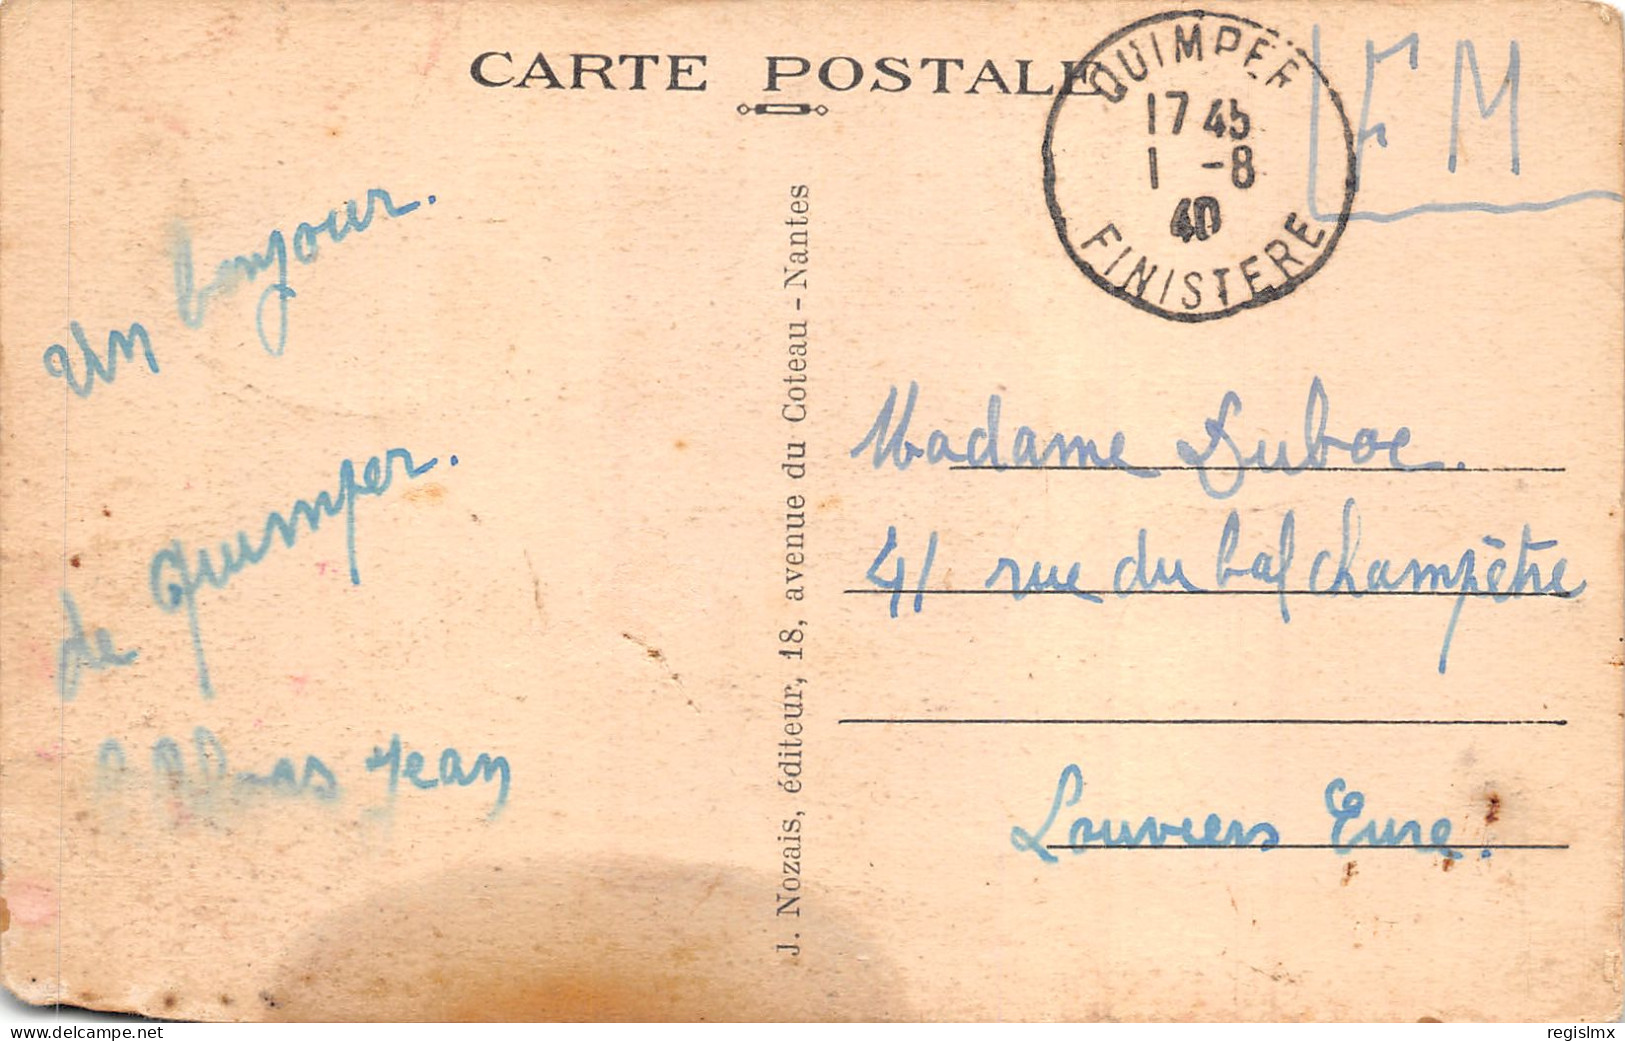 CARTE POSTALE
QUIMPER
17 45
1 -8
40
FINISTERE
F M
Un bonjour.
de Quimper.
Jean
J. Nozais, éditeur, 18, avenue du Coteau - Nantes
Madame Duboc.
41 rue du bal champêtre
Louviers Eure.
www.delcampe.net
regislmx